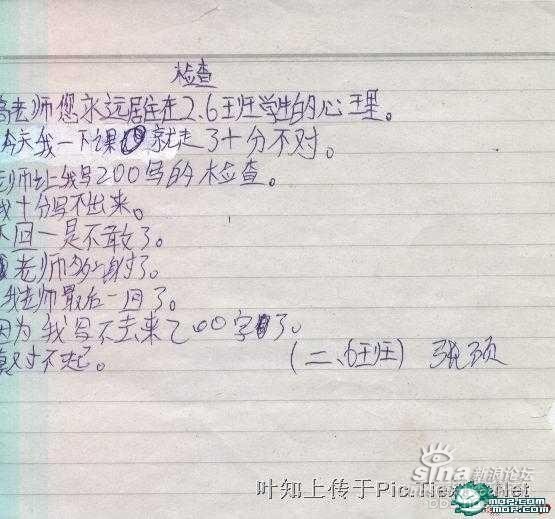 检查
高老师您永远居住在2.6班学生的心里。
今天我一下课就走了十分不对。
老师让我写200写的检查。
我十分写不出来。
下回一是不敢了。
老师多谢了。
我老师最后一回了。
因为我写不去来200字了。
真对不起。
(二、6班) 张颀
sina 新浪论坛
叶知上传于Pic.TieXue.Net
mop.com
mop.com